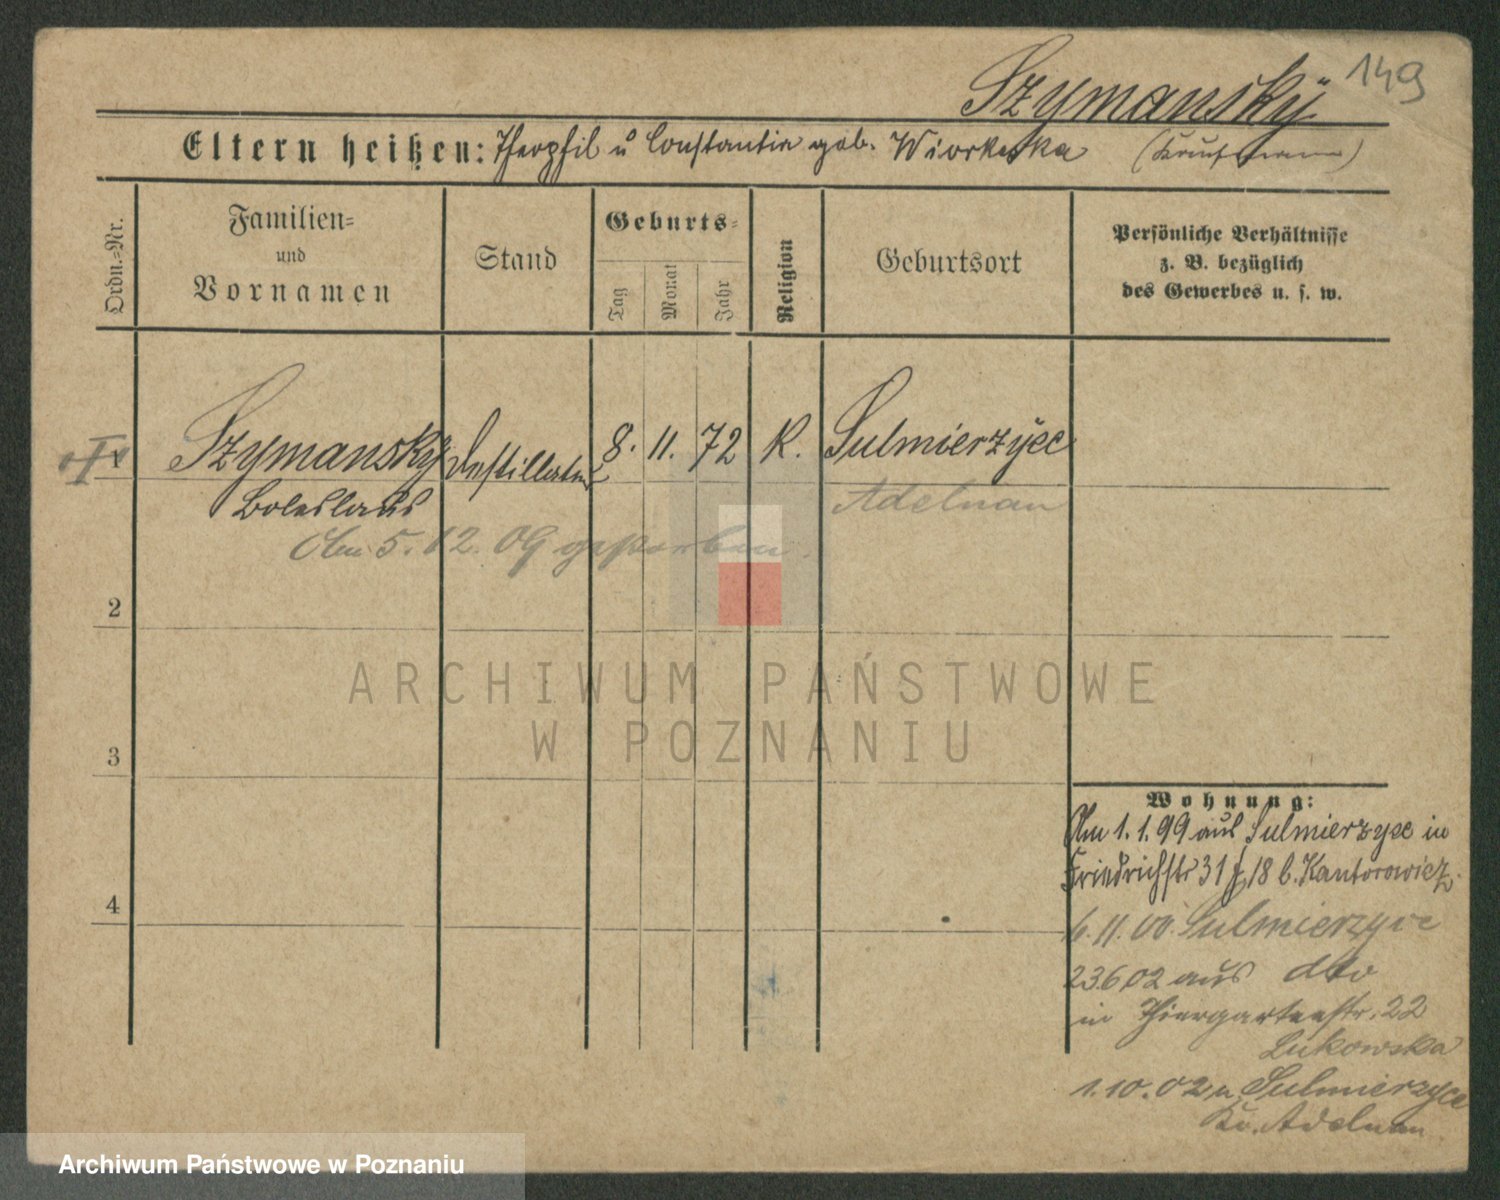 Szymanskÿ 149
Eltern heißen: Theophil ŭ Constantin geb. Wiorkuska (Kaufmann)
Ordn.-Nr.
Familien-
und
Vornamen
Stand
Geburts-
Tag
Monat
Jahr
Religion
Geburtsort
Persönliche Verhältnisse
z. B. bezüglich
des Gewerbes u. s. w.
1 Szymanskÿ Destillateur 8. 11. 72 K. Sulmierzÿce
Boleslaus Adelnau
Am 5. 12. 09 gestorben.
2
ARCHIWUM PAŃSTWOWE
W POZNANIU
3
Wohnung:
Am 1. 1. 99 aus Sulmierzyce in
Friedrichstr 31 18 b. Kantorowicz.
4
6. 11. 00. Sulmierzyce
23.6.02 aus dto
in Thiergartenstr. 22
Lukowska
1. 10. 02 n. Sulmierzyce
Kr. Adelnau
Archiwum Państwowe w Poznaniu